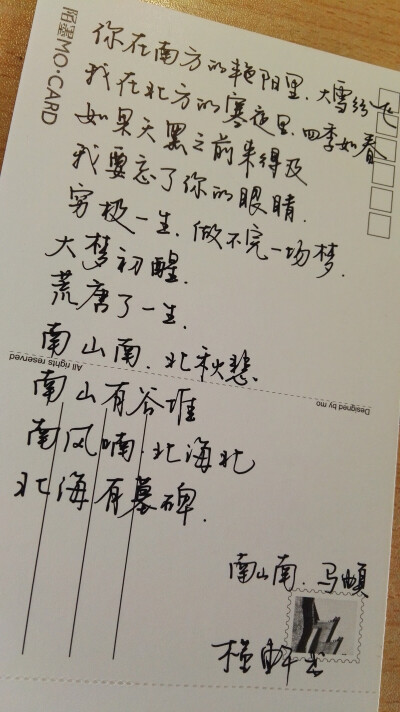 陌墨MO·CARD
你在南方的艳阳里.大雪纷飞
我在北方的寒夜里.四季如春
如果天黑之前来得及
我要忘了你的眼睛.
穷极一生.做不完一场梦.
大梦初醒.
荒唐了一生.
南山南.北秋悲
南山有谷堆
南风喃.北海北
北海有墓碑.
All rights reserved
Designed by mo
南山南.马頔